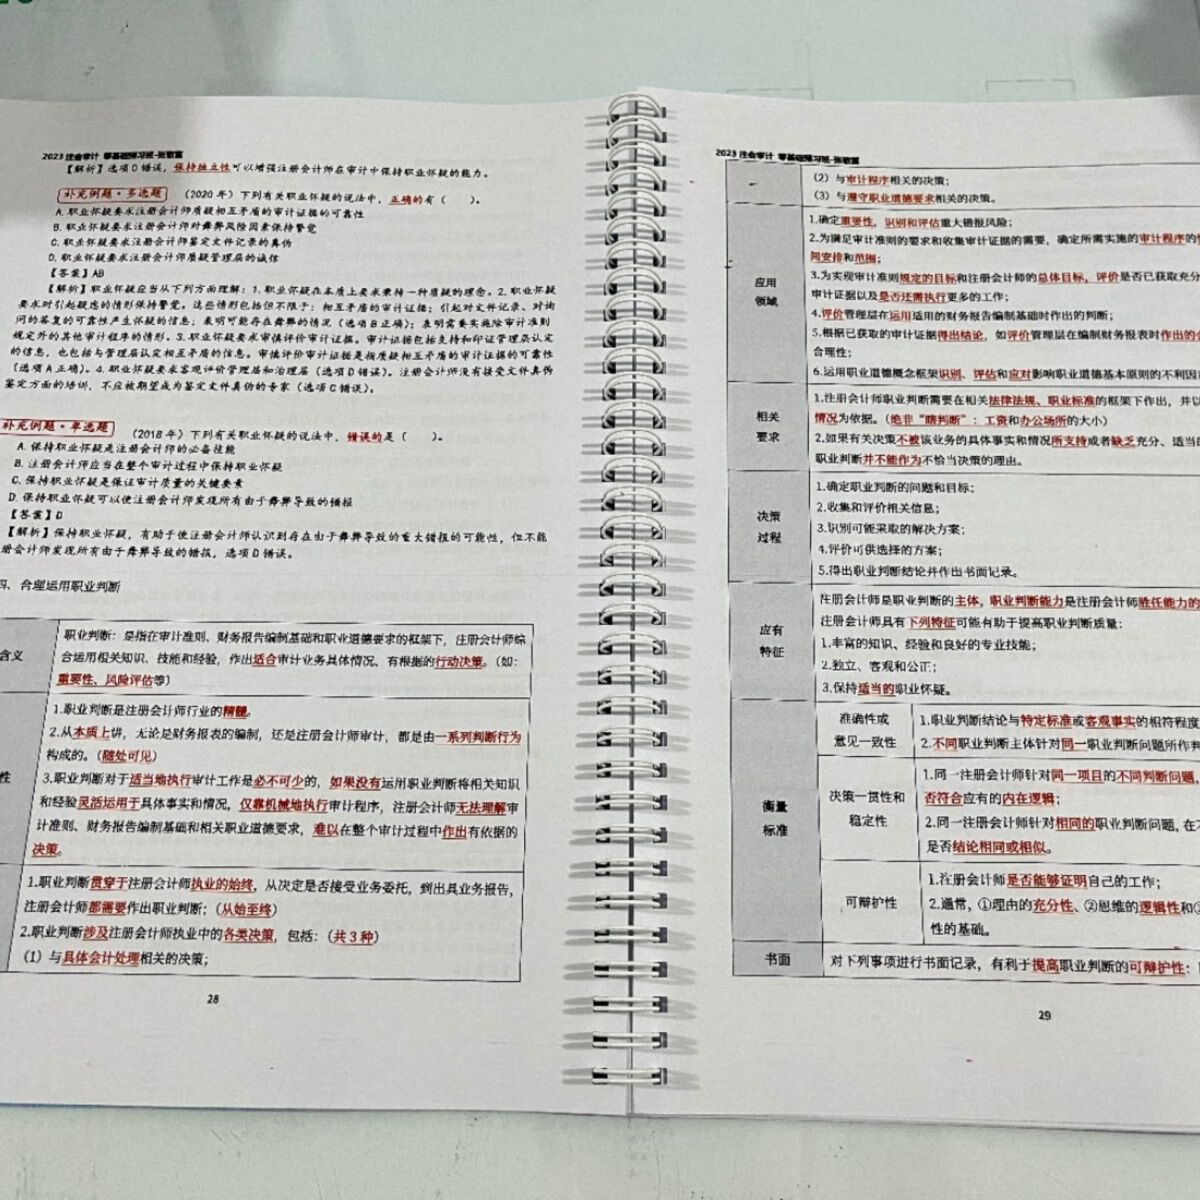 2023 注会审计 零基础预习班-张敬富
【解析】选项 D 错误，保持独立性可以增强注册会计师在审计中保持职业怀疑的能力。
补充例题·多选题 （2020 年）下列有关职业怀疑的说法中，正确的有（ ）。
A. 职业怀疑要求注册会计师质疑相互矛盾的审计证据的可靠性
B. 职业怀疑要求注册会计师对舞弊风险因素保持警觉
C. 职业怀疑要求注册会计师鉴定文件记录的真伪
D. 职业怀疑要求注册会计师质疑管理层的诚信
【答案】AB
【解析】职业怀疑应当从下列方面理解：1. 职业怀疑在本质上要求秉持一种质疑的理念。2. 职业怀疑
要求对引起疑虑的情形保持警觉。这些情形包括但不限于：相互矛盾的审计证据；引起对文件记录、对询
问的答复的可靠性产生怀疑的信息；表明可能存在舞弊的情况（选项 B 正确）；表明需要实施除审计准则
规定外的其他审计程序的情形。3. 职业怀疑要求审慎评价审计证据。审计证据包括支持和印证管理层认定
的信息，也包括与管理层认定相互矛盾的信息。审慎评价审计证据是指质疑相互矛盾的审计证据的可靠性
（选项 A 正确）。4. 职业怀疑要求客观评价管理层和治理层（选项 D 错误）。注册会计师没有接受文件真伪
鉴定方面的培训，不应被期望成为鉴定文件真伪的专家（选项 C 错误）。
补充例题·单选题 （2018 年）下列有关职业怀疑的说法中，错误的是（ ）。
A. 保持职业怀疑是注册会计师的必备技能
B. 注册会计师应当在整个审计过程中保持职业怀疑
C. 保持职业怀疑是保证审计质量的关键要素
D. 保持职业怀疑可以使注册会计师发现所有由于舞弊导致的错报
【答案】D
【解析】保持职业怀疑，有助于使注册会计师认识到存在由于舞弊导致的重大错报的可能性，但不能
册会计师发现所有由于舞弊导致的错报，选项 D 错误。
四、合理运用职业判断
含义
职业判断：是指在审计准则、财务报告编制基础和职业道德要求的框架下，注册会计师综
合运用相关知识、技能和经验，作出适合审计业务具体情况、有根据的行动决策。（如：
重要性、风险评估等）
性
1.职业判断是注册会计师行业的精髓。
2.从本质上讲，无论是财务报表的编制，还是注册会计师审计，都是由一系列判断行为
构成的。（随处可见）
3.职业判断对于适当地执行审计工作是必不可少的，如果没有运用职业判断将相关知识
和经验灵活运用于具体事实和情况，仅靠机械地执行审计程序，注册会计师无法理解审
计准则、财务报告编制基础和相关职业道德要求，难以在整个审计过程中作出有依据的
决策。
1.职业判断贯穿于注册会计师执业的始终，从决定是否接受业务委托，到出具业务报告，
注册会计师都需要作出职业判断；（从始至终）
2.职业判断涉及注册会计师执业中的各类决策，包括：（共 3 种）
（1）与具体会计处理相关的决策；
28
2023 注会审计 零基础预习班-张敬富
（2）与审计程序相关的决策；
（3）与遵守职业道德要求相关的决策。
应用
领域
1.确定重要性，识别和评估重大错报风险；
2.为满足审计准则的要求和收集审计证据的需要，确定所需实施的审计程序的
间安排和范围；
3.为实现审计准则规定的目标和注册会计师的总体目标，评价是否已获取充分
审计证据以及是否还需执行更多的工作；
4.评价管理层在运用适用的财务报告编制基础时作出的判断；
5.根据已获取的审计证据得出结论，如评价管理层在编制财务报表时作出的
合理性；
6.运用职业道德概念框架识别、评估和应对影响职业道德基本原则的不利因
相关
要求
1.注册会计师职业判断需要在相关法律法规、职业标准的框架下作出，并以
情况为依据。（绝非“瞎判断”：工资和办公场所的大小）
2.如果有关决策不被该业务的具体事实和情况所支持或者缺乏充分、适当
职业判断并不能作为不恰当决策的理由。
决策
过程
1.确定职业判断的问题和目标；
2.收集和评价相关信息；
3.识别可能采取的解决方案；
4.评价可供选择的方案；
5.得出职业判断结论并作出书面记录。
应有
特征
注册会计师是职业判断的主体，职业判断能力是注册会计师胜任能力的
注册会计师具有下列特征可能有助于提高职业判断质量：
1.丰富的知识、经验和良好的专业技能；
2.独立、客观和公正；
3.保持适当的职业怀疑。
衡量
标准
准确性或
意见一致性
1.职业判断结论与特定标准或客观事实的相符程度
2.不同职业判断主体针对同一职业判断问题所作判
决策一贯性和
稳定性
1.同一注册会计师针对同一项目的不同判断问题，
否符合应有的内在逻辑；
2.同一注册会计师针对相同的职业判断问题，在不
是否结论相同或相似。
可辩护性
1.注册会计师是否能够证明自己的工作；
2.通常，①理由的充分性、②思维的逻辑性和③
性的基础。
书面
对下列事项进行书面记录，有利于提高职业判断的可辩护性：
29